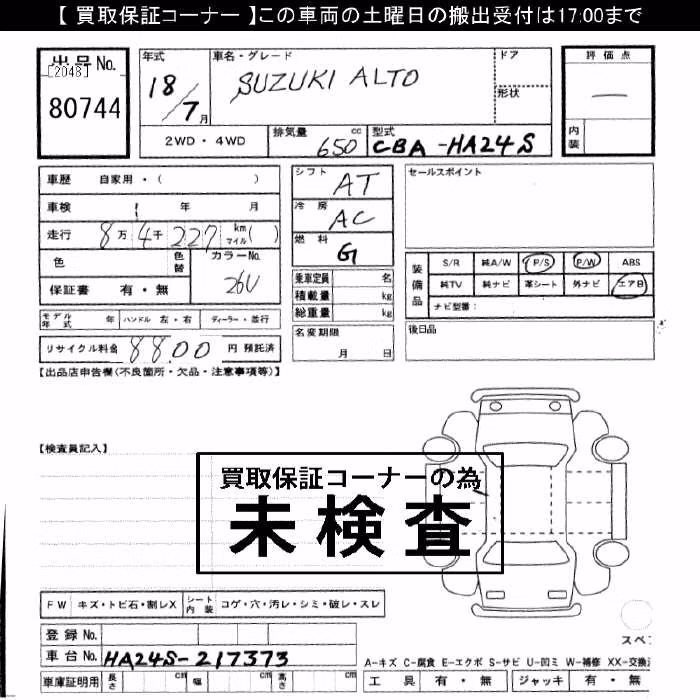 【 買取保証コーナー 】この車両の土曜日の搬出受付は17:00まで
出品No.
[2048]
80744
年式
18/7月
車名・グレード
SUZUKI ALTO
ドア
形状
評価点
内装
2WD・4WD
排気量 650 cc
型式 CBA-HA24S
車歴 自家用・( )
車検 年 月
走行 8万4千227 km(マイル)
色
色替
カラーNo. 26U
保証書 有・無
シフト AT
冷房 AC
燃料 G
乗車定員 名
積載量 kg
総重量 kg
セールスポイント
装備品
S/R 純A/W P/S P/W ABS
純TV 純ナビ 革シート 外ナビ エアB
ナビ型番：
モデル年式 年 ハンドル 左・右 ディーラー・並行
名変期限
月 日
後日品
リサイクル料金 8800 円 預託済
【出品店申告欄(不良箇所・欠品・注意事項等)】
【検査員記入】
買取保証コーナーの為
未検査
FW キズ・トビ石・割レX シート内装 コゲ・穴・汚レ・シミ・破レ・スレ
登録No.
車台No. HA24S-217373
車庫証明用 長さ cm 幅 cm 高さ cm
スペ
A-キズ C-腐食 E-エクボ S-サビ U-凹ミ W-補修 XX-交換済
工具 有・無 ジャッキ 有・無